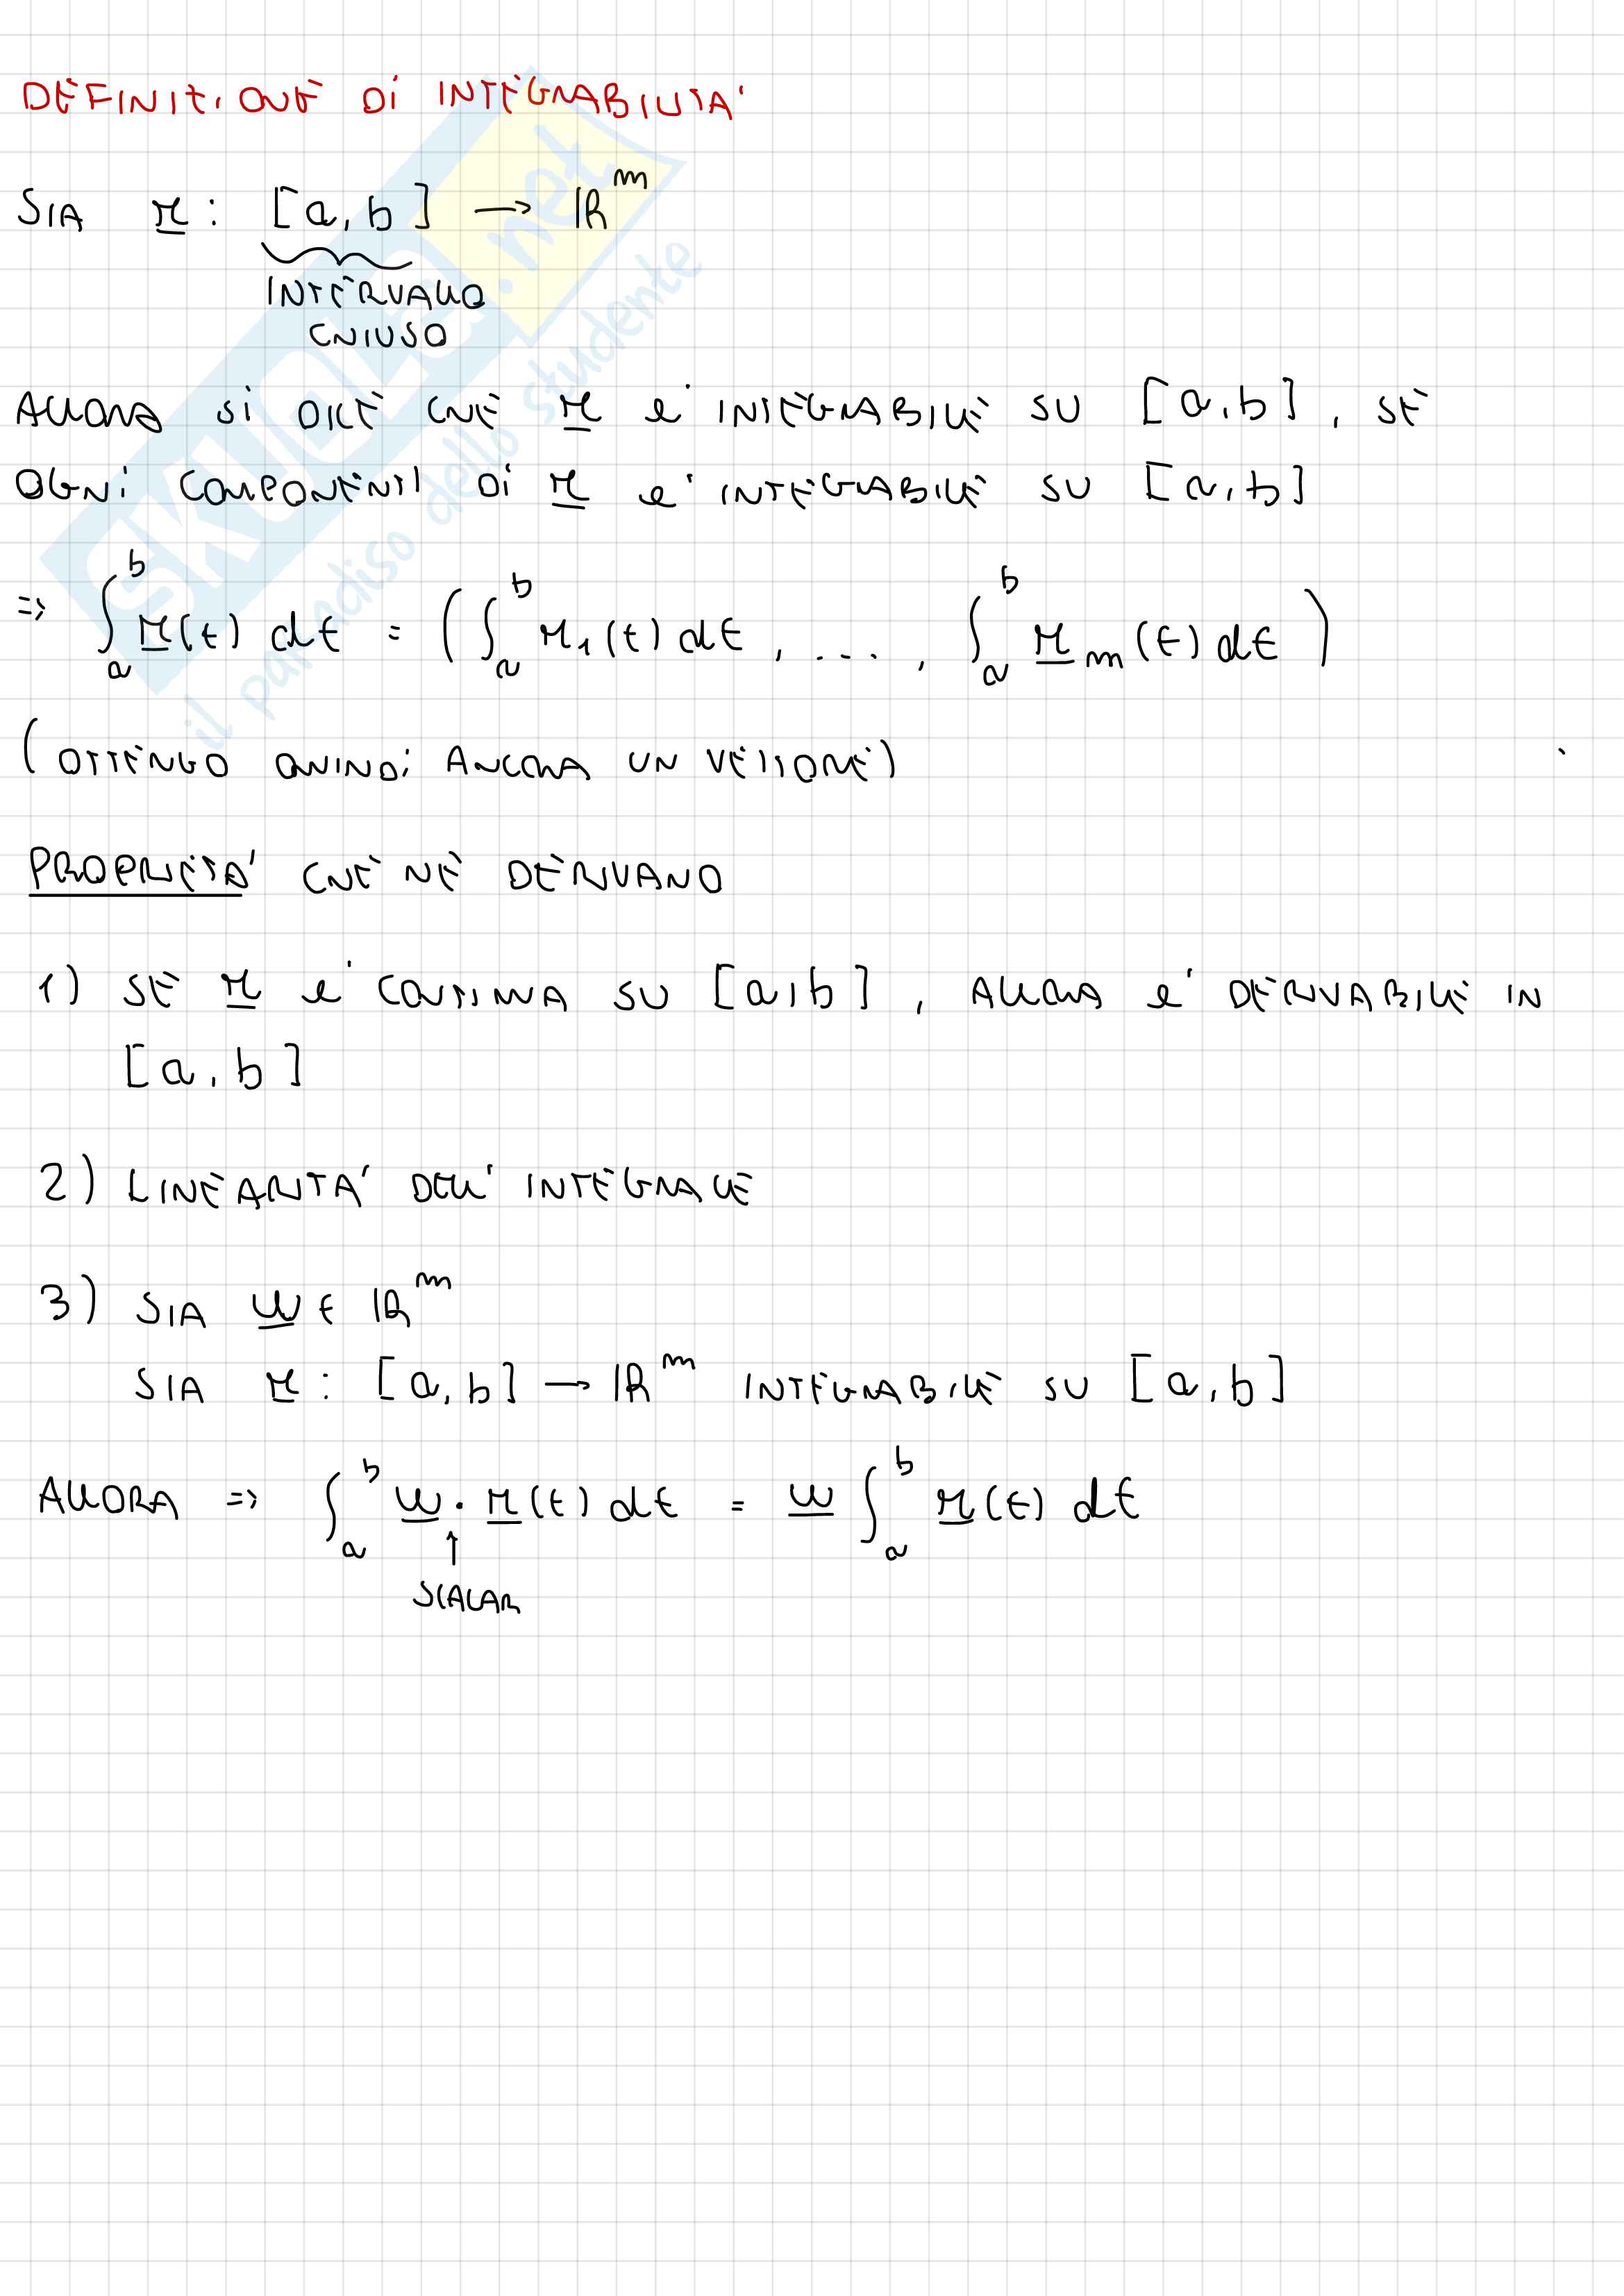 DEFINIZIONE DI INTEGRABILITA'
SIA r: [a,b] → ℝ^m
INTERVALLO
CHIUSO
ALLORA SI DICE CHE r e' INTEGRABILE SU [a,b], SE
OGNI COMPONENTI DI r e' INTEGRABILE SU [a,b]
=> ∫_a^b r(t) dt = (∫_a^b r_1(t) dt, ...., ∫_a^b r_m(t) dt)
(OTTENGO QUINDI ANCORA UN VETTORE)
PROPRIETA' CHE NE DERIVANO
1) SE r e' CONTINUA SU [a,b], ALLORA e' DERIVABILE IN
[a,b]
2) LINEARITA' DELL'INTEGRALE
3) SIA w ∈ ℝ^m
SIA r: [a,b] → ℝ^m INTEGRABILE SU [a,b]
ALLORA => ∫_a^b w · r(t) dt = w ∫_a^b r(t) dt
↑
SCALAR
SKUOLA.net
il paradiso dello studente